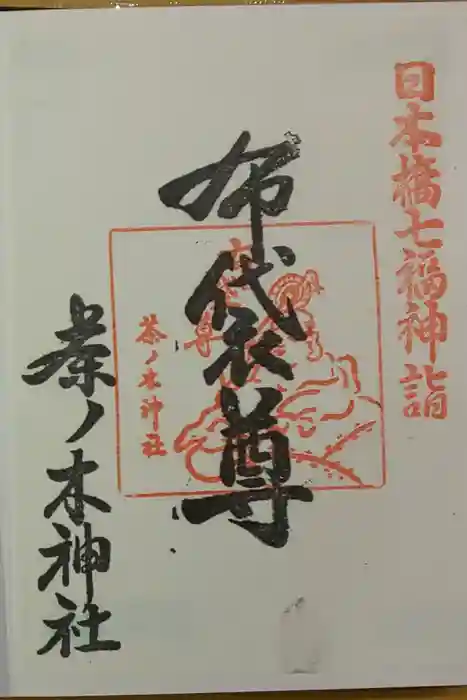 日本橋七福神詣
布袋尊
茶ノ木神社
茶ノ木神社